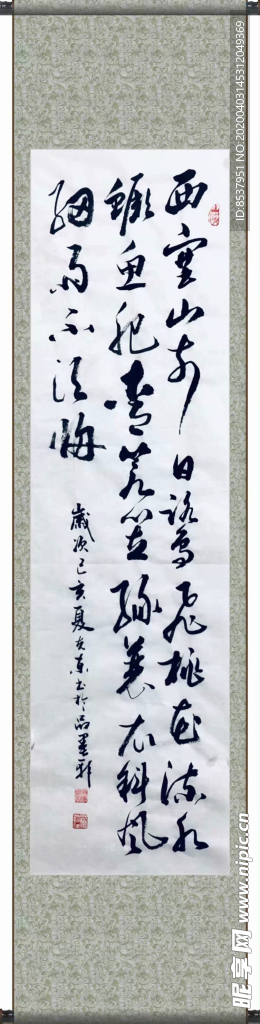 西塞山前白鷺飛桃花流水
鱖魚肥青箬笠綠蓑衣斜風
細雨不須歸
歲次己亥夏书於品墨軒
ID:8537951 NO:20200403145312049369
昵享网 www.nipic.cn